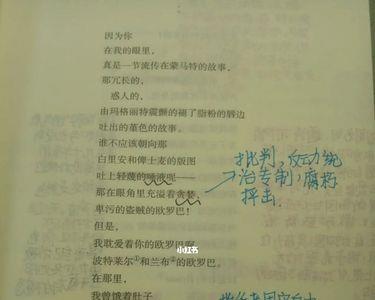 因为你
在我的眼里，
真是一节流传在蒙马特的故事，
那冗长的，
惑人的，
由玛格丽特震颤的褪了脂粉的唇边
吐出的堇色的故事。
谁不应该朝向那
白里安和俾士麦的版图
吐上轻蔑的唾液呢——
那在眼角里充溢着贪婪，
卑污的盗贼的欧罗巴！
但是，
我耽爱着你的欧罗巴啊，
波特莱尔①和兰布②的欧罗巴。
在那里，
我曾饿着肚子
批判，反动统
治专制，腐朽
抨击.
小红书